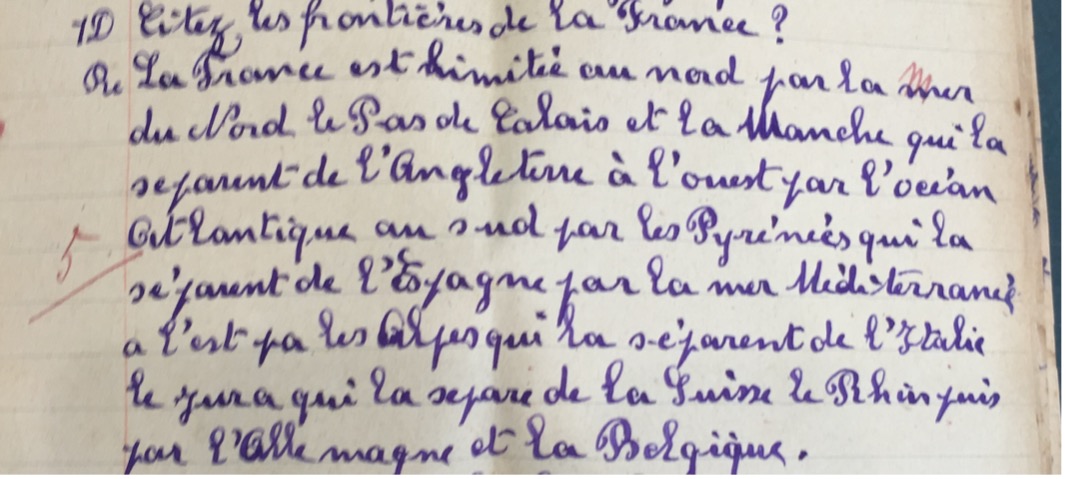 1D Citez les frontières de la France ?
Re La France est limitée au nord par la mer
du Nord le Pas de Calais et la Manche qui la
separent de l'Angleterre à l'ouest par l'océan
Atlantique au sud par les Pyrénées qui la
séparent de l'Espagne par la mer Méditerranée
a l'est pa les Alpes qui la séparent de l'Italie
5
le jura qui la separe de la Suisse le Rhin puis
par l'Allemagne et la Belgique.